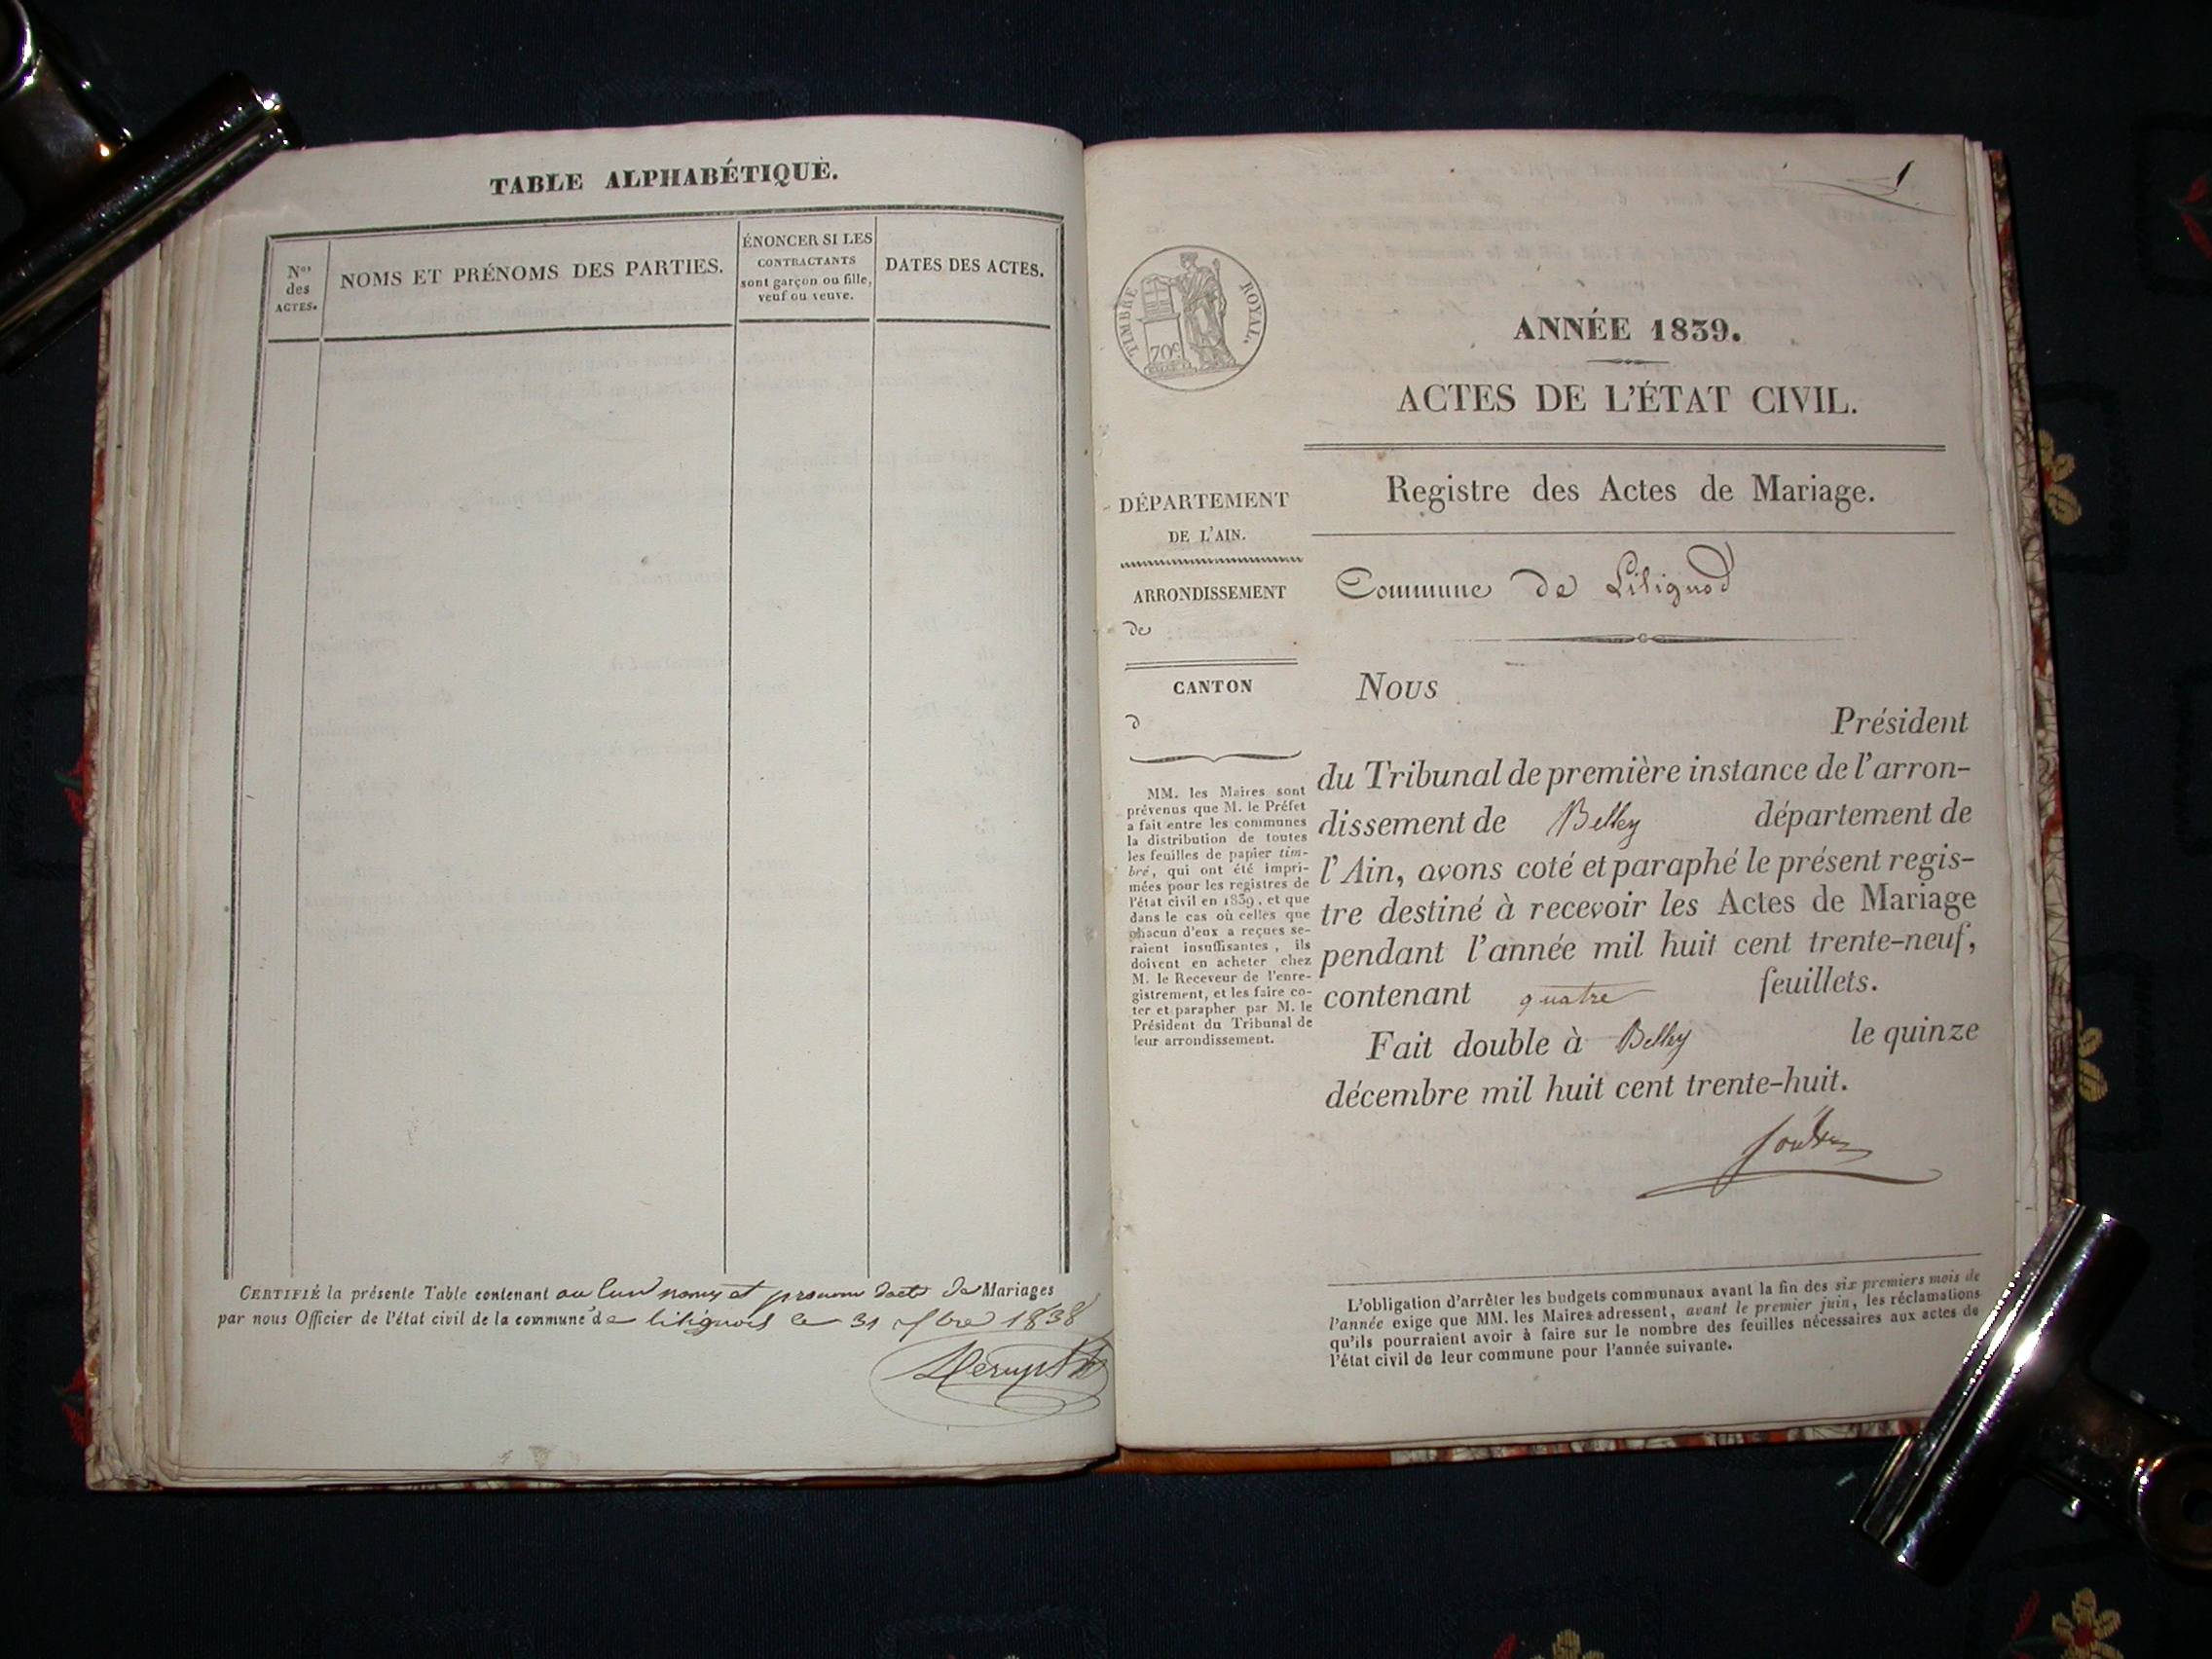 TABLE ALPHABÉTIQUE.
Nos
des
ACTES.
NOMS ET PRÉNOMS DES PARTIES.
ÉNONCER SI LES
CONTRACTANTS
sont garçon ou fille,
veuf ou veuve.
DATES DES ACTES.
CERTIFIÉ la présente Table contenant aucuns noms et prenoms dacte de Mariages
par nous Officier de l'état civil de la commune de lilignod le 31 Xbre 1838
1
TIMBRE ROYAL.
70c
ANNÉE 1839.
ACTES DE L'ÉTAT CIVIL.
Registre des Actes de Mariage.
DÉPARTEMENT
DE L'AIN.
ARRONDISSEMENT
de
CANTON
d
MM. les Maires sont
prévenus que M. le Préfet
a fait entre les communes
la distribution de toutes
les feuilles de papier tim-
bré, qui ont été impri-
mées pour les registres de
l'état civil en 1839, et que
dans le cas où celles que
chacun d'eux a reçues se-
raient insuffisantes, ils
doivent en acheter chez
M. le Receveur de l'enre-
gistrement, et les faire co-
ter et parapher par M. le
Président du Tribunal de
leur arrondissement.
Commune de Lilignod
Nous
Président
du Tribunal de première instance de l'arron-
dissement de Belley département de
l'Ain, avons coté et paraphé le présent regis-
tre destiné à recevoir les Actes de Mariage
pendant l'année mil huit cent trente-neuf,
contenant quatre feuillets.
Fait double à Belley le quinze
décembre mil huit cent trente-huit.
L'obligation d'arrêter les budgets communaux avant la fin des six premiers mois de
l'année exige que MM. les Maires adressent, avant le premier juin, les réclamations
qu'ils pourraient avoir à faire sur le nombre des feuilles nécessaires aux actes de
l'état civil de leur commune pour l'année suivante.